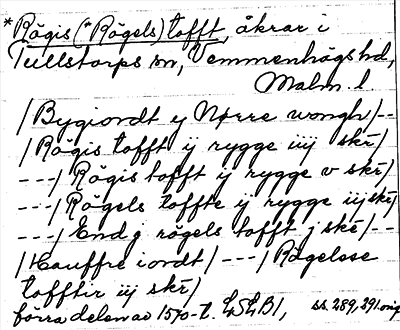 *Rögis (*Rögels) tofft, åkrar i
Tullstorps sn, Vemmenhögs hd,
Malm. l.
/Bygiordt ij Nørre wongh/--
/Rögis tofft ij rygge iiij skē/
---/Rögis tofft ij rygge v skē/
---/Rögels toffte ij rygge iij skē/
---/End j rögels tofft j skē/--
/Hauffre iordt/---/Rögelsse
tofftir iij skē/
förra delen av 1570-t. LSEB1, ss. 289, 291. orig